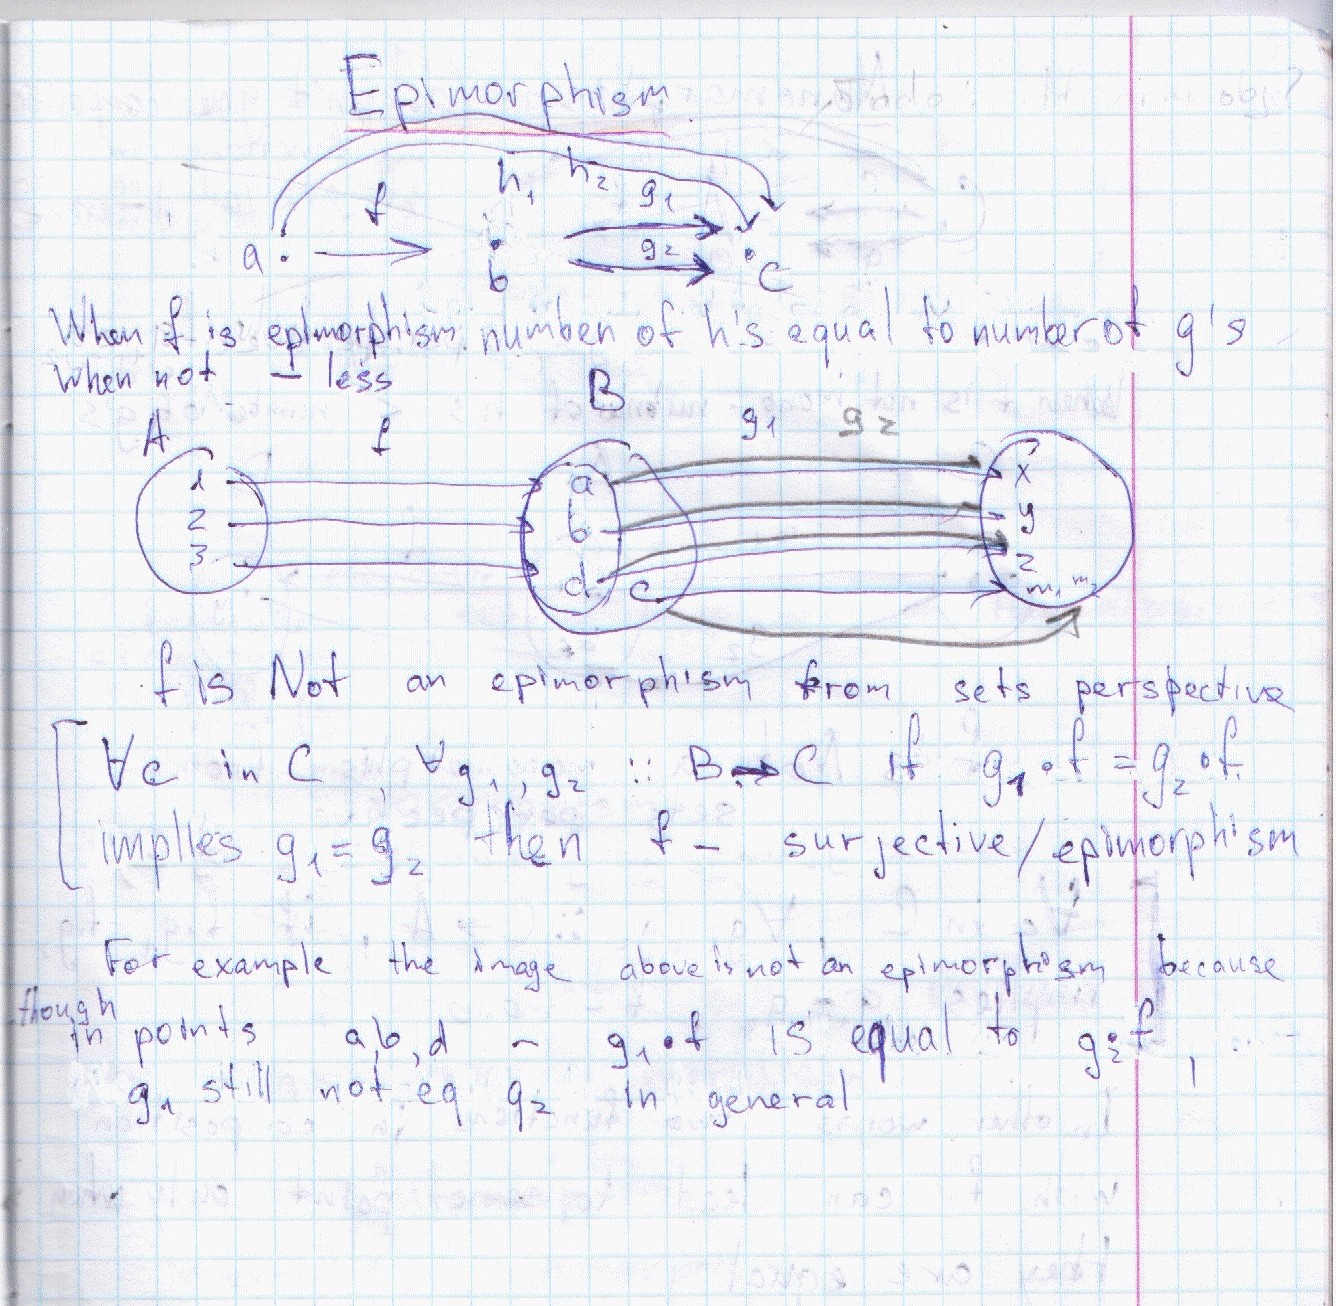 Epimorphism
h₁ h₂ g₁
f
g₂
a . b . c
When f is epimorphism number of h's equal to number of g's
when not - less
B
A f g₁ g₂
1 a x
2 b y
3 d c z
m₁ m₂
f is Not an epimorphism from sets perspective
∀c in C, ∀g₁, g₂ :: B → C if g₁∘f = g₂∘f
implies g₁ = g₂ then f - surjective/epimorphism
For example the image above is not an epimorphism because
though
in points a,b,d - g₁∘f is equal to g₂∘f,
g₁ still not eq g₂ in general